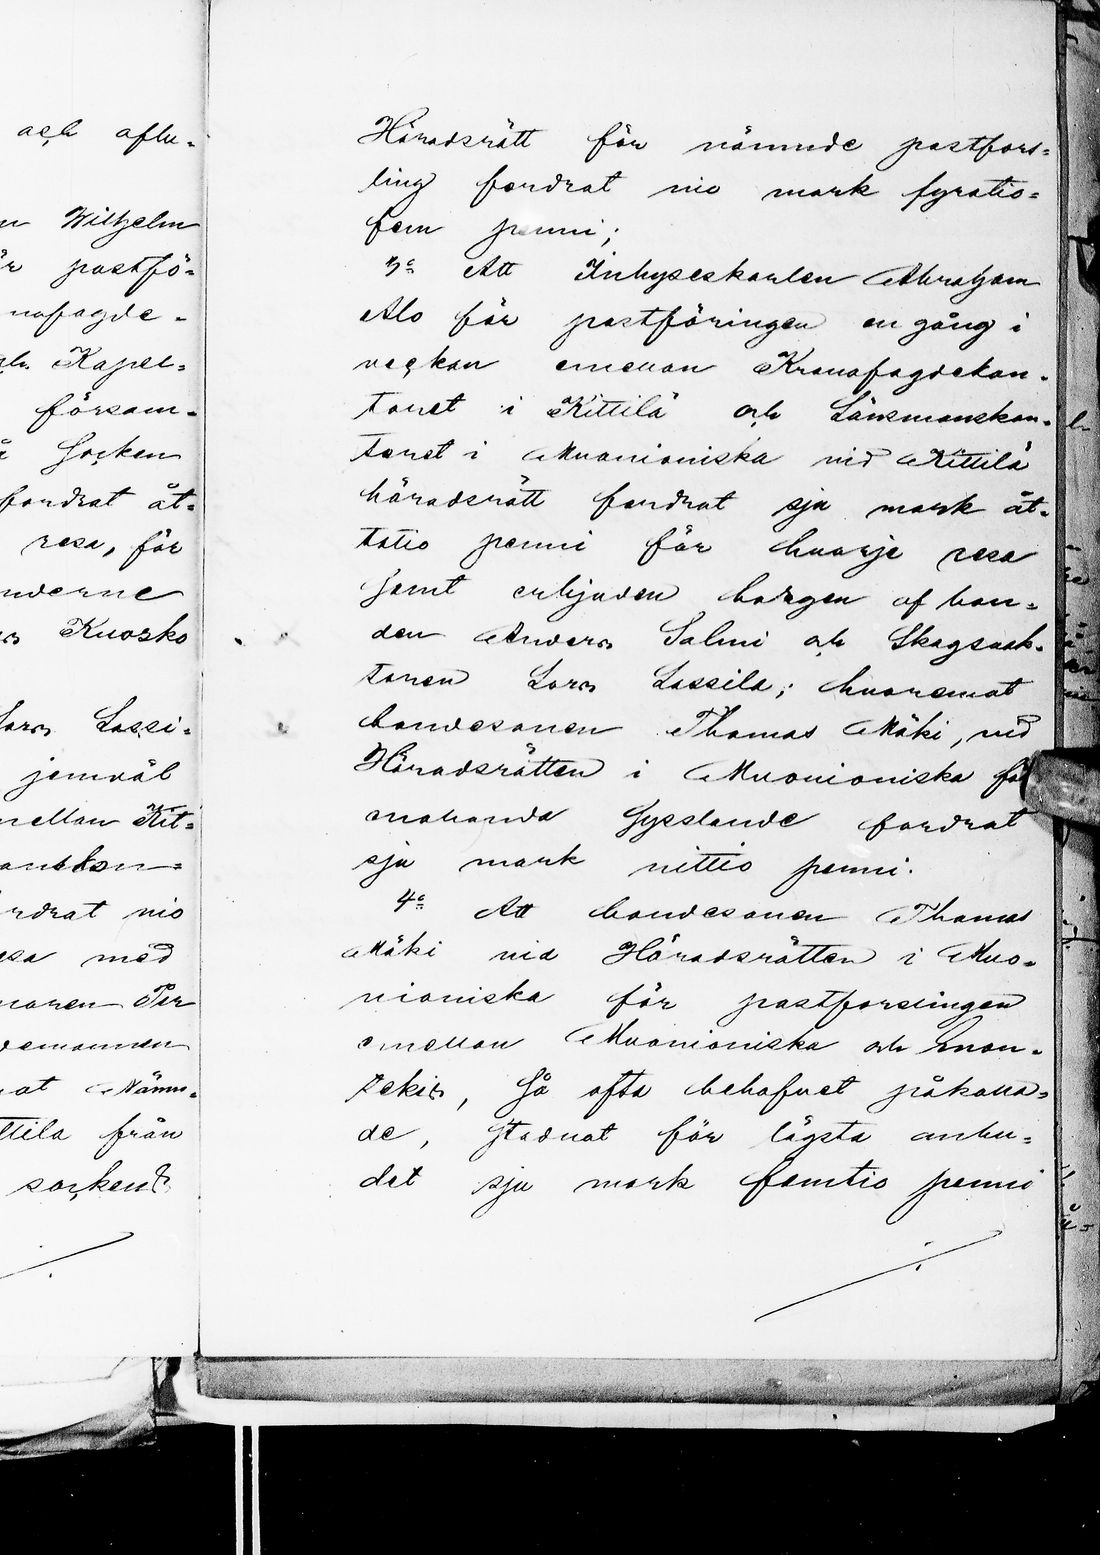 och aflu-
Wilhelm
postfö-
nofogde-
Kapel-
försam-
Socken
fordrat åt-
resa, för
nderne
Kuosko
Lars Lassi-
jemväl
mellan Kit-
nio
med
Per
demannen
Nämn-
ttila från
sockens
Häradsrätt för nämnde postfors-
ling fordrat nio mark fyratio-
fem penni;
3o Att Inhyseskarlen Abraham
Alo för postföringen en gång i
veckan emellan Kronofogdekon-
toret i Kittilä och Länsmanskon-
toret i Muonioniska vid Kittilä
häradsrätt fordrat sju mark åt-
tatio penni för hvarje resa
samt erbjuden borgen af bon-
den Anders Salmi och Skogsvak-
taren Lars Lassila; hvaremot
bondesonen Thomas Mäki, vid
Häradsrätten i Muonioniska för
enahanda sysslande fordrat
sju mark nittio penni.
4o Att bondesonen Thomas
Mäki vid Häradsrätten i Muo-
nioniska för postforslingen
emellan Muonioniska och Enon-
tekis, så ofta behofvet påkalla-
de, stadnat för lägsta anbu-
det sju mark femtio penni